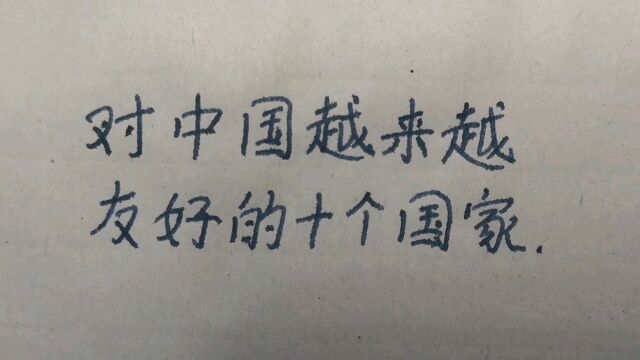 对中国越来越
友好的十个国家.